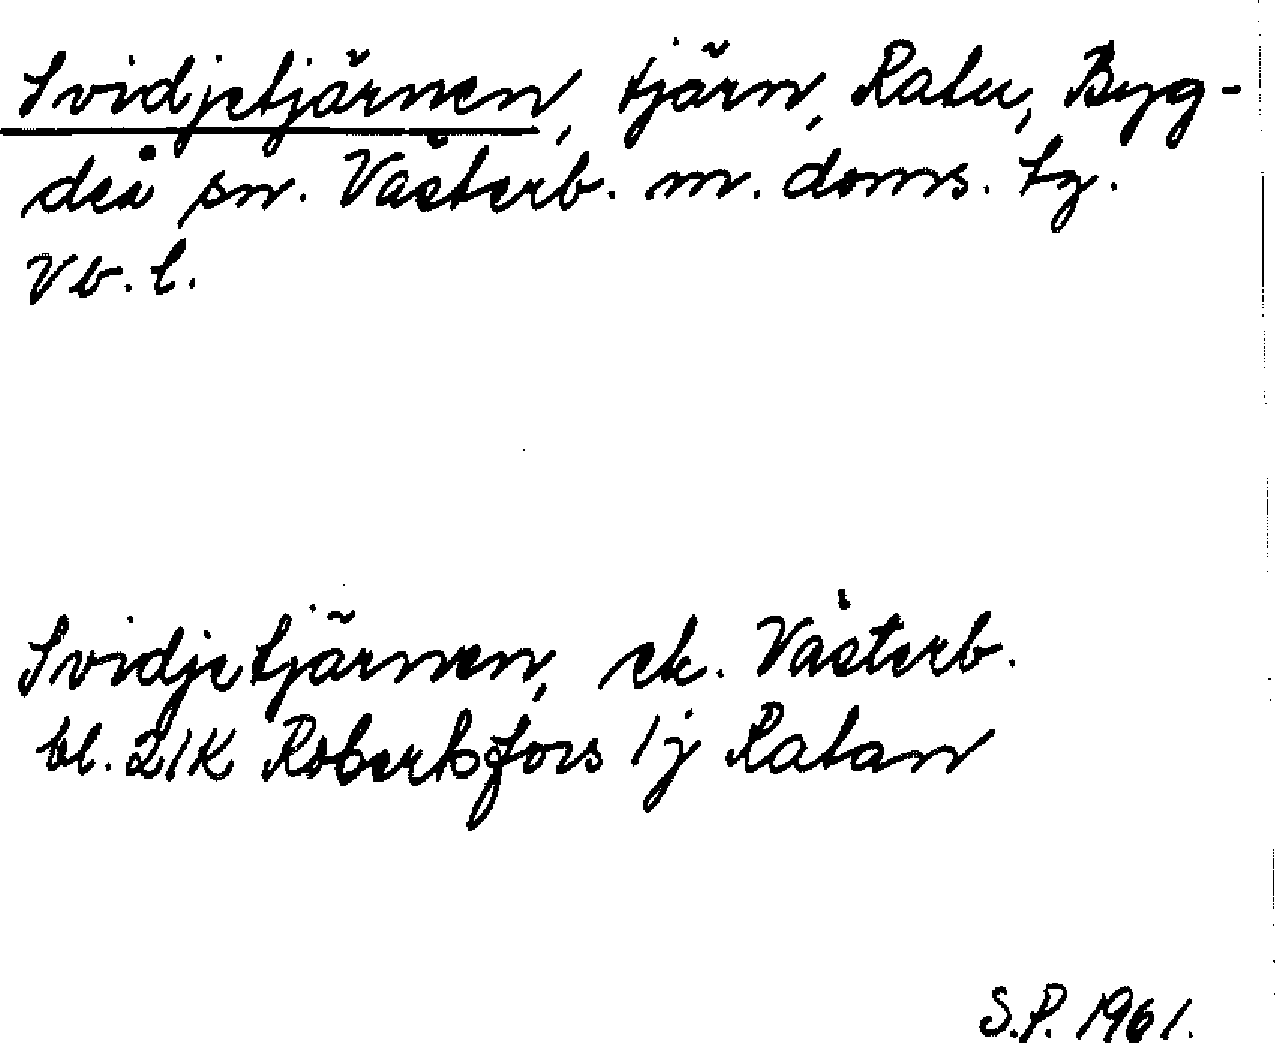 Svidjetjärnen, tjärn, Ratu, Byg-
deå sn. Västerb. m. doms. tg.
Vb. l.
Svidjetjärnen, ek. Västerb.
bl. 21K Robertsfors 1j Ratan
S.P. 1961.